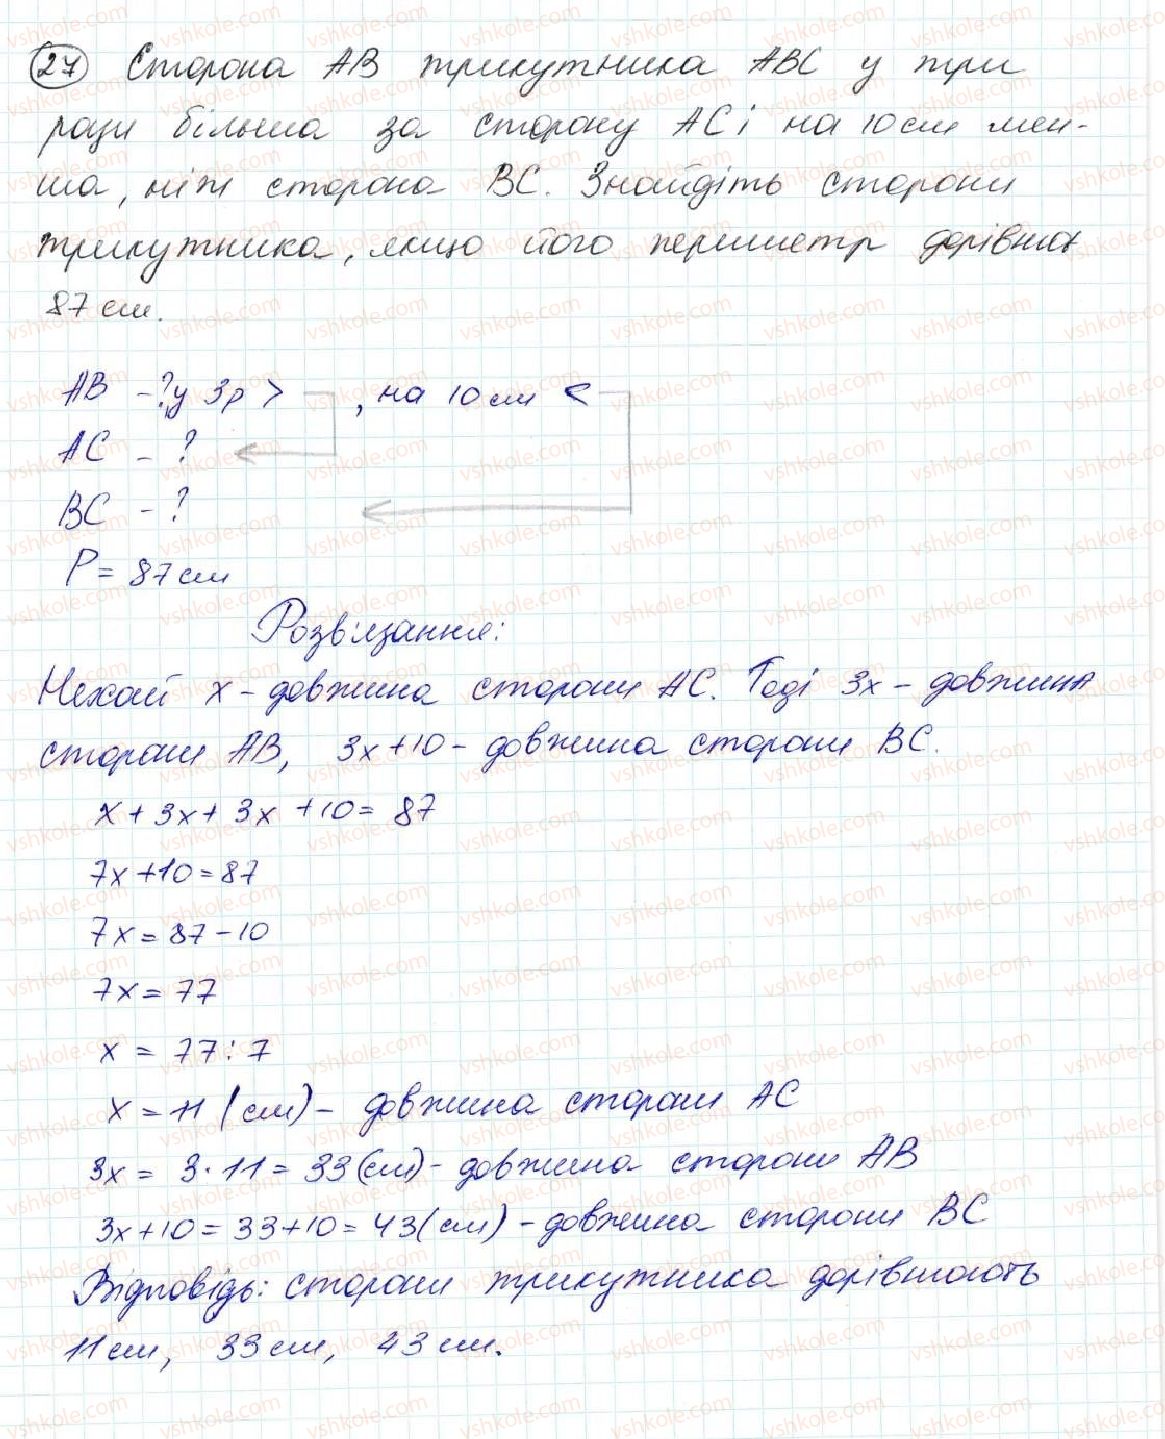 27 Сторона AB трикутника ABC у три
рази більша за сторону AC і на 10 см мен-
ша, ніж сторона BC. Знайдіть сторони
трикутника, якщо його периметр дорівнює
87 см.
AB - ? у 3р > , на 10 см <
AC - ?
BC - ?
P = 87 см
Розв'язання:
Нехай x - довжина сторони AC. Тоді 3x - довжина
сторони AB, 3x+10 - довжина сторони BC.
x + 3x + 3x + 10 = 87
7x + 10 = 87
7x = 87 - 10
7x = 77
x = 77 : 7
x = 11 (см) - довжина сторони AC
3x = 3 · 11 = 33 (см) - довжина сторони AB
3x + 10 = 33 + 10 = 43 (см) - довжина сторони BC
Відповідь: сторони трикутника дорівнюють
11 см, 33 см, 43 см.
vshkole.com